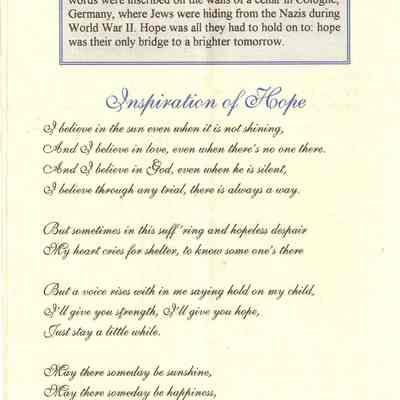 words were inscribed on the walls of a cellar in Cologne,
Germany, where Jews were hiding from the Nazis during
World War II. Hope was all they had to hold on to: hope
was their only bridge to a brighter tomorrow.
Inspiration of Hope
I believe in the sun even when it is not shining,
And I believe in love, even when there's no one there.
And I believe in God, even when he is silent,
I believe through any trial, there is always a way.
But sometimes in this suff'ring and hopeless despair
My heart cries for shelter, to know some one's there
But a voice rises with in me saying hold on my child,
I'll give you strength, I'll give you hope,
Just stay a little while.
May there someday be sunshine,
May there someday be happiness,